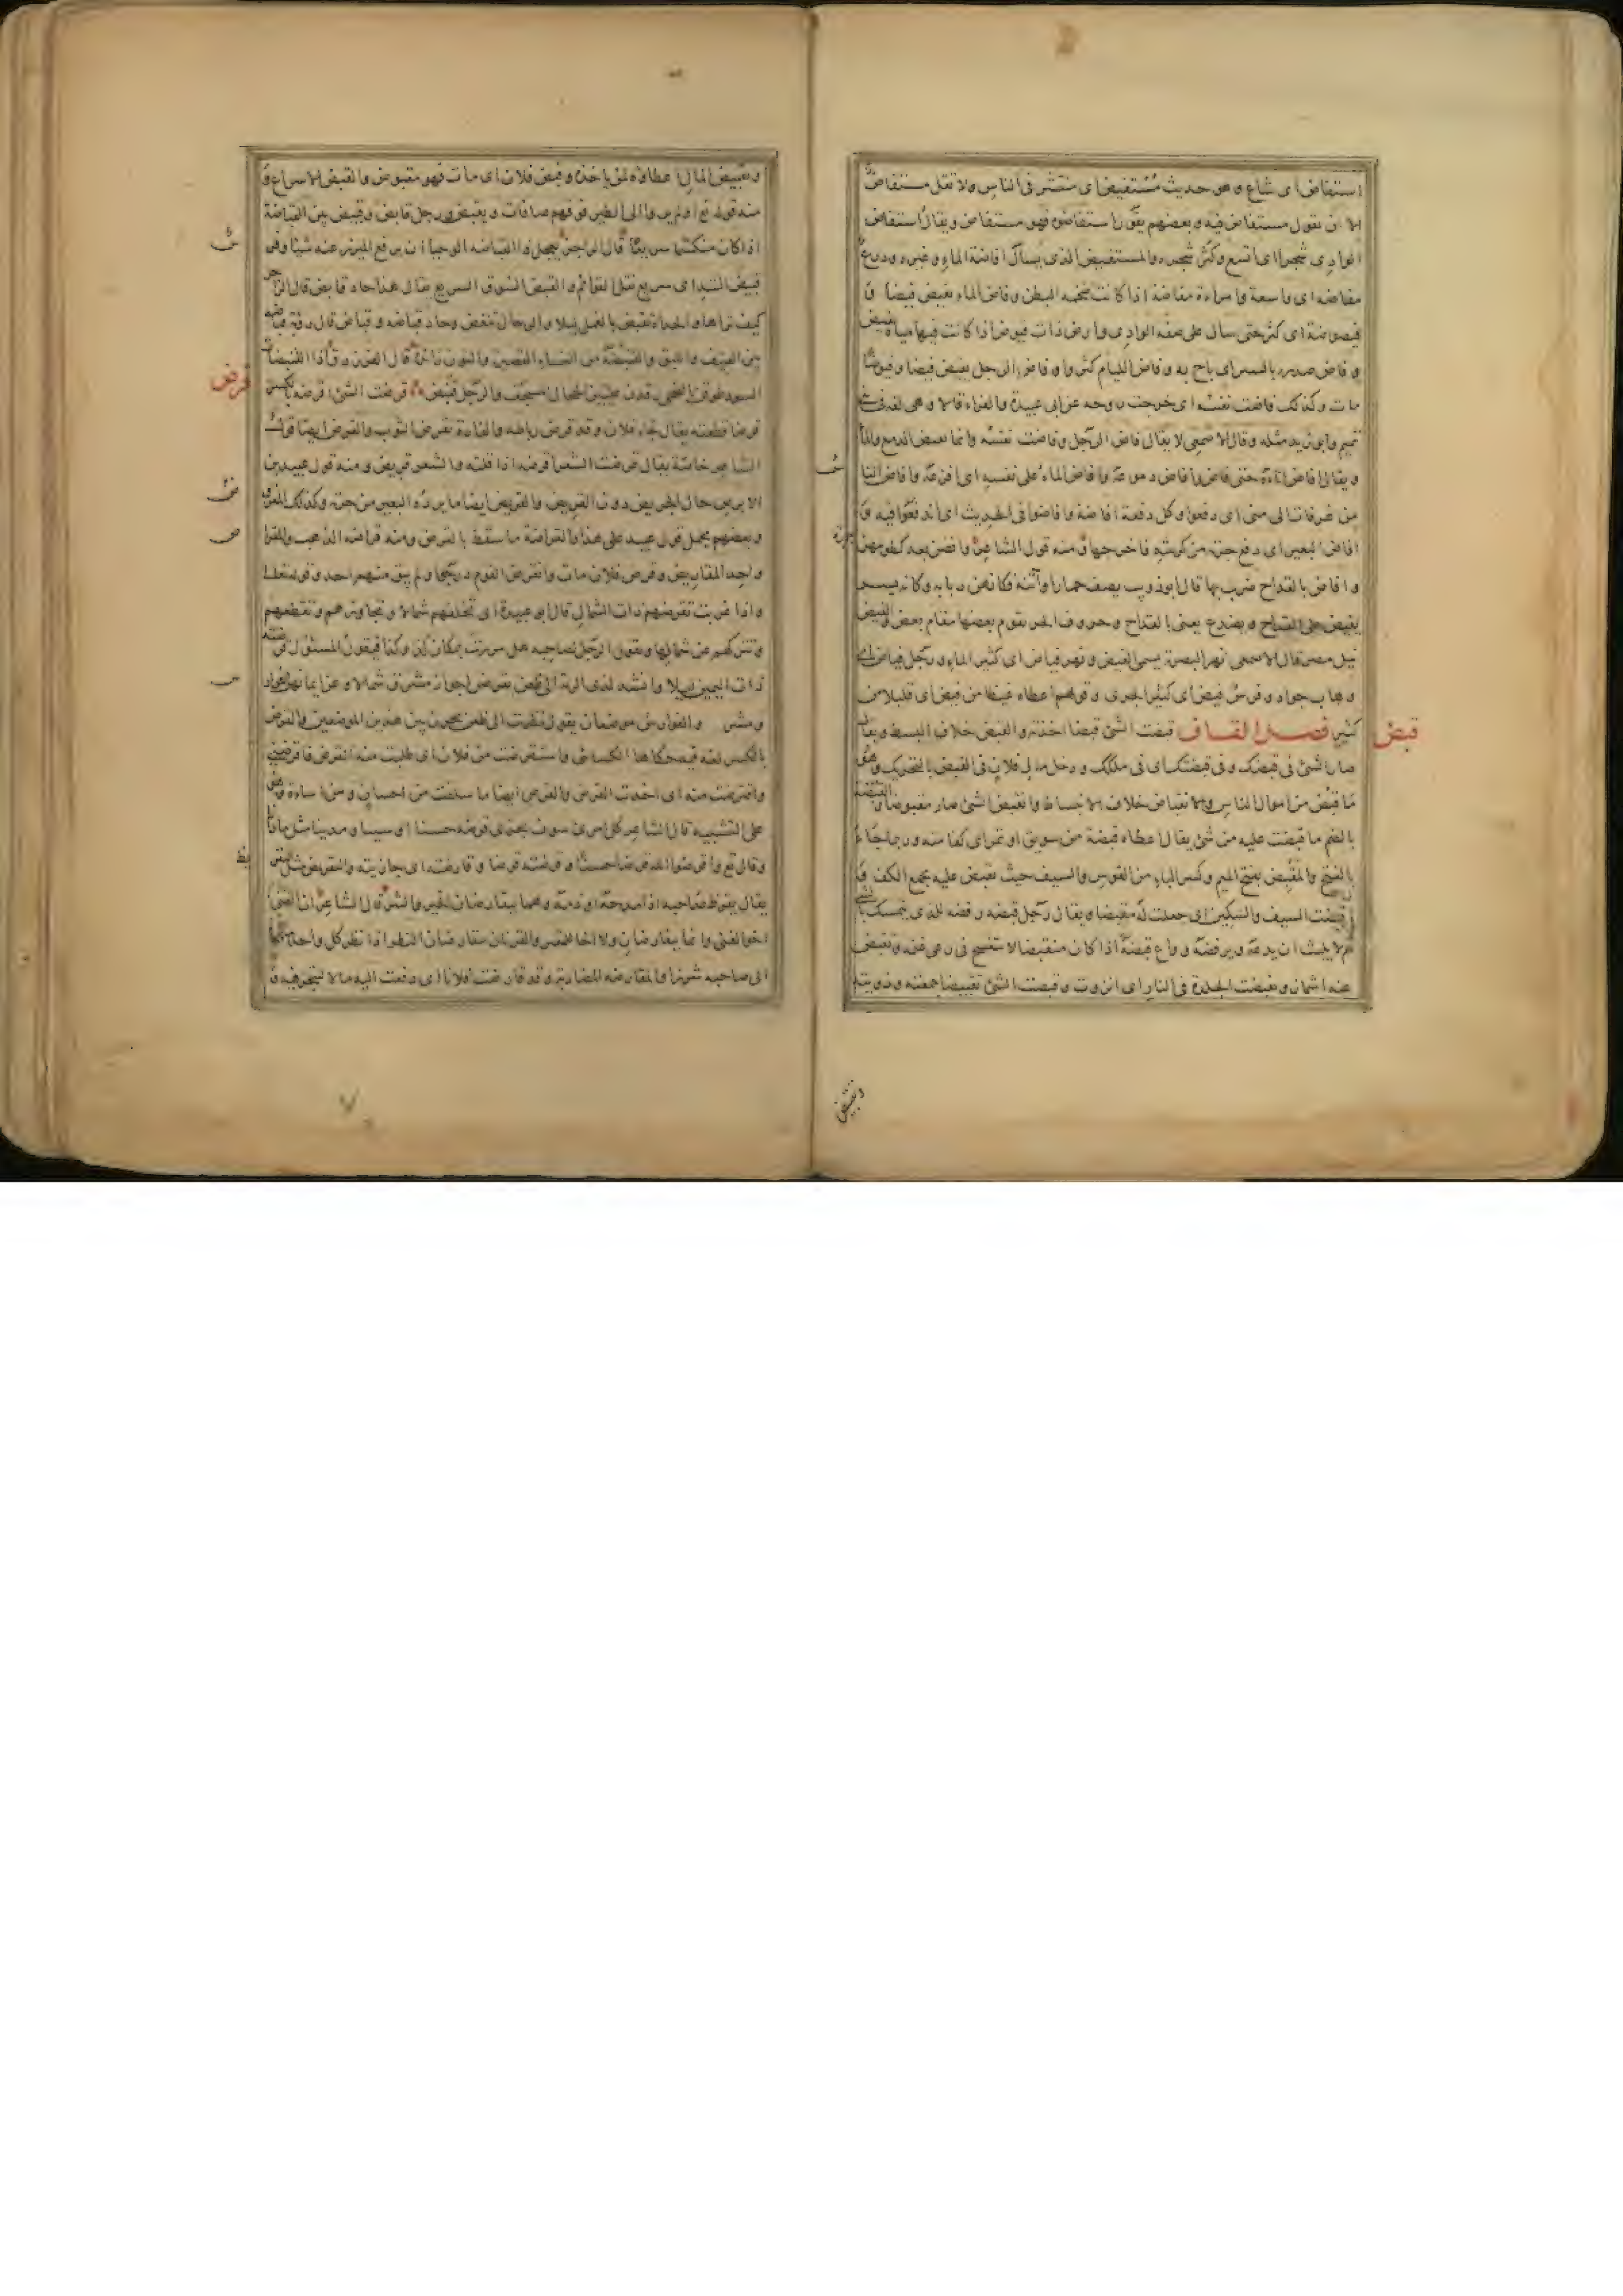 استفاض اى شاع وهو حديث مستفيض اى منتشر فى الناس ولا تقل مستفاض
الا ان تقول مستفاض فيه وبعضهم يقول استفاضوه فهو مستفاض ويقال استفاض
الوادى شجرا اى اتسع وكثر شجره والمستفيض الذى يسأل افاضة الماء وغيره ودرع
مفاضة اى واسعة وامراءة مفاضة اذا كانت ضخمة البطن وفاض الماء يفيض فيضا و
فيضوضة اى كثر حتى سال على ضفة الوادى وارض ذات فيوض اذا كانت فيها مياه تفيض
وفاض صدره بالسر اى باح به وفاض اللئام كثروا وفاض الرجل يفيض فيضا وفيوضا
مات وكذلك فاضت نفسه اى خرجت روحه عن ابى عبيدة والفراء قالا وهى لغة فى
تميم وابو زيد مثله وقال الاصمعى لا يقال فاض الرجل وفاضت نفسه وانما يفيض الدمع والماء
ويقال افاض اناءه حتى فاض وافاض دموعه وافاض الماء على نفسه اى افرغه وافاض الناس
من عرفات الى منى اى دفعوا وكل دفعة افاضة وافاضوا فى الحديث اى اندفعوا فيه و
افاض البعير اى دفع جرته من كرشه فاخرجها ومنه قول الشاعر وافضن بعد كظومهن
وافاض بالقداح ضرب بها قال ابو ذويب يصف حمارا واتنه فكانهن ربابة وكانه يسر
يفيض على القداح ويصدع يعنى بالقداح وحروف الجر يقوم بعضها مقام بعض والفيض
نيل مصر قال الاصمعى نهر البصرة يسمى الفيض ونهر فياض اى كثير الماء ورجل فياض اى
وهاب جواد وفرس فيض اى كثير الجرى وقولهم اعطاه غيضا من فيض اى قليلا من
قبض
كثير فصل القاف قبضت الشئ قبضا اخذته والقبض خلاف البسط ويقال
صار الشئ فى قبضك وفى قبضتك اى فى ملكك ودخل مال فلان فى القبض بالتحريك وهو
ما قبض من اموال الناس والانقباض خلاف الانبساط وانقبض الشئ صار مقبوضا والقبضة
بالضم ما قبضت عليه من شئ يقال اعطاه قبضة من سويق او تمر اى كفا منه وربما جاء
بالفتح والمقبض بفتح الميم وكسر الباء من القوس والسيف حيث تقبض عليه بجمع الكف و
اقبضت السيف والسكين اى جعلت له مقبضا ويقال رجل قبضة رفضة للذى يتمسك بالشئ
ثم لا يلبث ان يدعه ويرفضه وراع قبضة اذا كان منقبضا لا يتفسح فى رعى غنمه وتقبض
عنه اشمأز وتقبضت الجلدة فى النار اى انزوت وقبضت الشئ تقبيضا جمعته وزويته
وتقبيض
وتقبيض المال اعطاؤه لمن ياخذه وقبض فلان اى مات فهو مقبوض والقبض الاسراع و
منه قوله تع اولم يروا الى الطير فوقهم صافات ويقبضن ورجل قابض وقبيض بين القباضة
اذا كان منكمشا سريعا قال الراجز يعجل ذا القباضة الوحيا ان يرفع الميزر عنه شيئا وفرس
قبيض الشد اى سريع نقل القوائم والقبض السوق السريع يقال هذا حاد قابض قال الراجز
كيف تراها والحداة تقبض بالغمل ليلا والرحال تنغض وحاد قباضة وقباض قال رؤبة قباضة
بين العنيف واللبق والقنبضة من النساء القصيرة والنون زائدة قال الفرزدق اذا القنبضات
السود طوفن بالضحى رقدن عليهن الحجال المسجف والرجل قنبض قرضت الشئ اقرضه بالكسر
قرض
قرضا قطعته يقال جاء فلان وقد قرض رباطه والفاءرة تقرض الثوب والقرض ايضا قول
الشاعر خاصة يقال قرضت الشعر اقرضه اذا قلته والشعر قريض ومنه قول عبيد بن
الابرص حال الجريض دون القريض والقريض ايضا ما يرده البعير من جرته وكذلك المقروض
وبعضهم يحمل قول عبيد على هذا والقراضة ما سقط بالقرض ومنه قراضة الذهب والمقراض
واحد المقاريض وقرض فلان مات وانقرض القوم درجوا ولم يبق منهم احد وقوله تعالى
واذا غربت تقرضهم ذات الشمال قال ابو عبيدة اى تخلفهم شمالا وتجاوزهم وتقطعهم
وتتركهم عن شمالها ويقول الرجل لصاحبه هل مررت بمكان كذا وكذا فيقول المسئول قرضته
ذات اليمين ليلا وانشد لذى الرمة الى ظعن يقرضن اجواز مشرف شمالا وعن ايمانهن الفوارس
ومشرف والفوارس موضعان يقول نظرت الى ظعن يجزن بين هذين الموضعين والقرض
بالكسر لغة فيه حكاها الكسائى واستقرضت من فلان اى طلبت منه القرض فاقرضنى
واقترضت منه اى اخذت القرض والقرض ايضا ما سلفت من احسان ومن اساءة وهو
على التشبيه قال الشاعر كل امرئ سوف يجزى قرضه حسنا او سيئا ومدينا مثل ما دانا
وقال تع واقرضوا الله قرضا حسنا وقرضته قرضا وقارضته اى جازيته والتقريض مثل التقريظ
يقال يقرظ صاحبه اذا مدحه او ذمه وهما يتقارضان الخير والشر قال الشاعر ان الغنى
اخو الغنى وانما يتقارضان ولا اخا للمقتر والقرنان يتقارضان النظر اذا نظر كل واحد منهما
الى صاحبه شزرا والمقارضة المضاربة وقد قارضت فلانا اى دفعت اليه مالا ليتجر فيه و